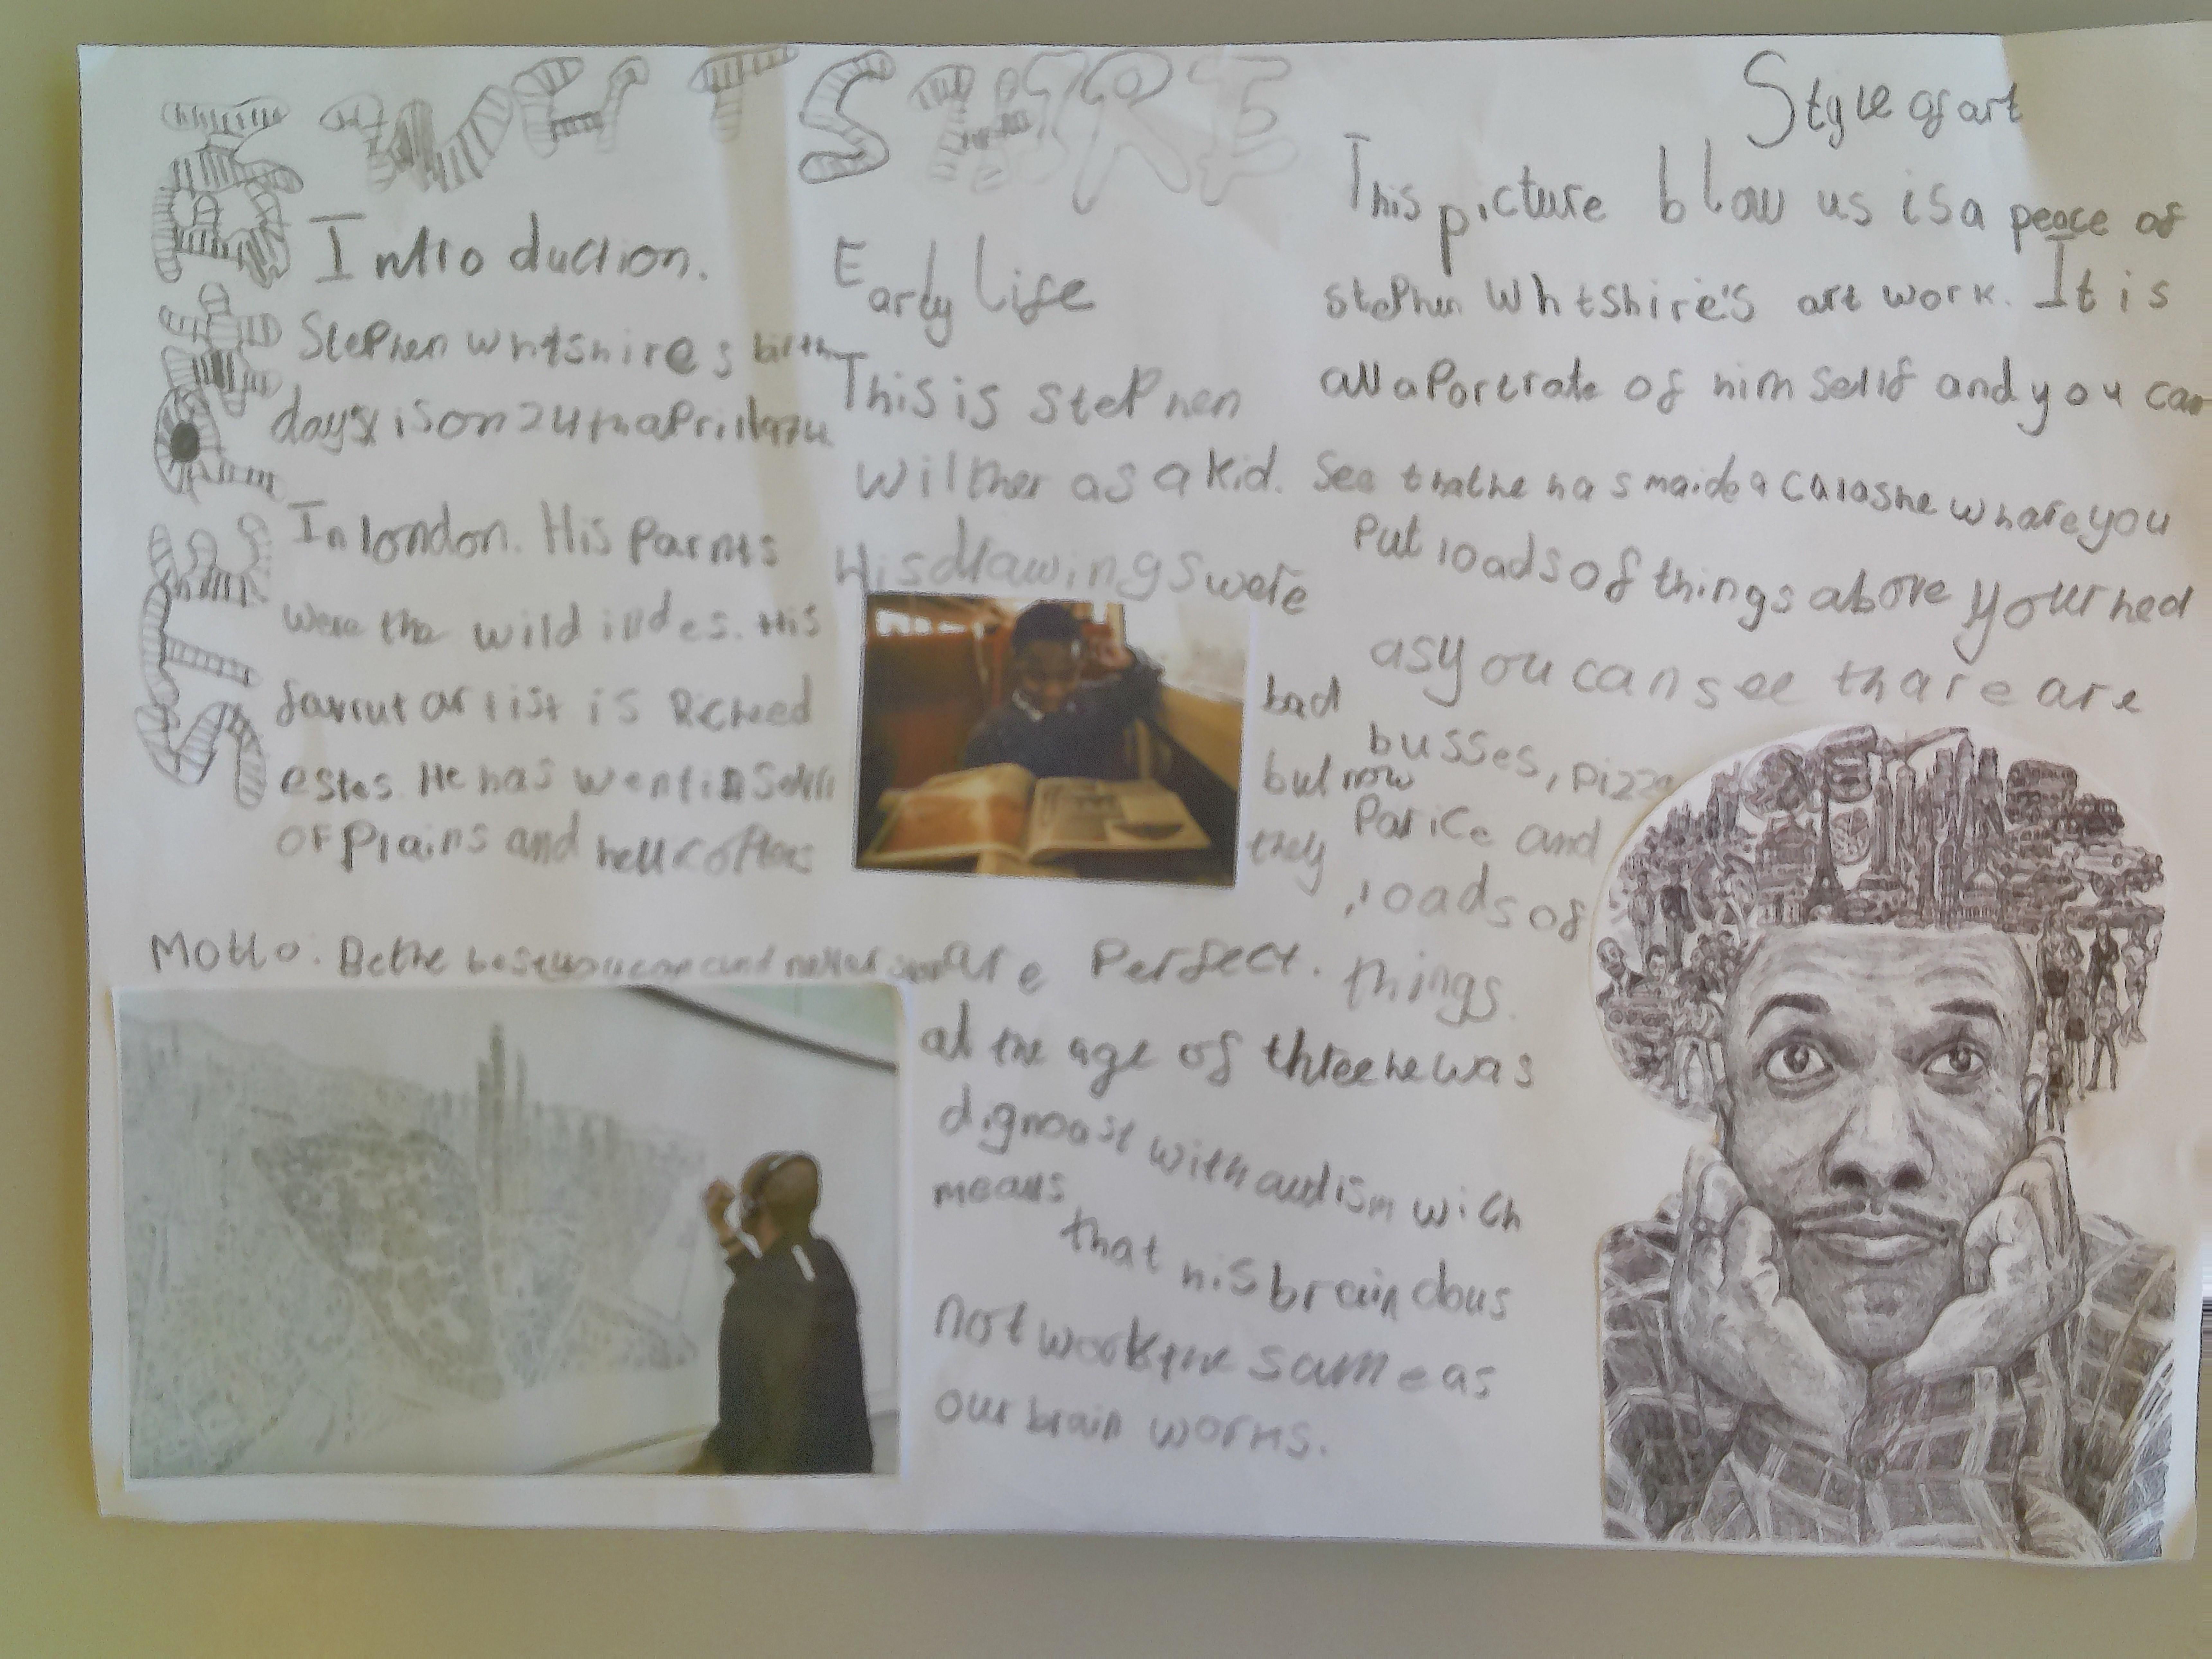 Introduction.
Stephen Whtshires birth
days is on 24th april 1974
In london. His Parnts
were the wild
favrut artist is Richeed
estes. He has went in
of Plains and hellicofters
Motto: Be the best you can and never
Early Life
This is stePhen
wilther as a kid.
His drawings were
bad
but now
they
are Perfect.
at the age of three he was
dignoast with audism wich
means
that his brain dous
not work the same as
our brain works.
Style of art
This picture blow us is a peace of
stePhen Whtshire's art work. It is
all a Portrate of him self and you can
See that he has maide a calashe whare you
Put loads of things above your hed
as you can see thare are
busses, pizza
Parice and
loads of
things.